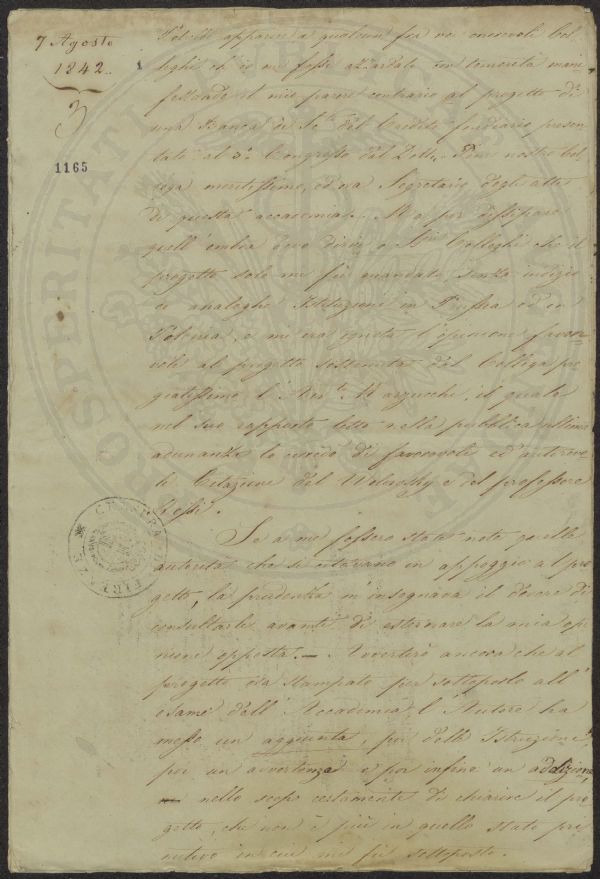 7 Agosto
1842.
3
1165
Potrebbe apparire a qualcuno fra voi onorevoli Col-
leghi ch'io mi fossi azzardato con temerità mani-
festando il mio parere contrario al progetto di
una Banca di Sc.ta del Credito fondiario presen-
tato al 3.° Congresso dal Dott. nostro Col-
lega meritissimo, ed ora Segretario degli atti
di questa accademia. Ma per dissipare
quell'ombra devo dirvi o Colleghi che il
progetto solo mi fu mandato, senza indizio
di analoghe Istituzioni in Prussia ed in
Polonia, e mi era ignota l'opinione favor-
vole al progetto sostenuta dal Collega pre-
giatissimo l'Avv.to Marzucchi, il quale
nel suo rapporto letto nella pubblica ultima
adunanza lo corredò di favorevoli ed autorevo-
li Citazioni del Wolowsky e del professore
Rossi.
Se a me fossero state note quelle
autorità che si citavano in appoggio al pro-
getto, la prudenza m'insegnava il dovere di
consultarle avanti di esternare la mia opi-
nione opposta. — Avvertirò ancora che al
progetto già stampato per sottoporlo all'
esame dell'Accademia, l'Autore ha
messo un aggiunta, poi delle Istruzioni,
poi un avvertenza e poi infine un addizione,
nello scopo certamente di chiarire il pro-
getto, che non è più in quello stato pri-
mitivo in cui mi fu sottoposto.
PROSPERITATI PUBLICAE